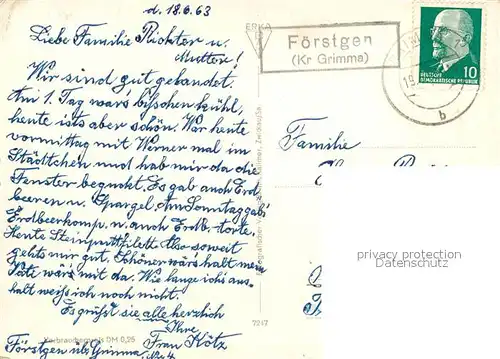 d. 18.6.63
Liebe Familie Richter u.
Mutter!
Wir sind gut gelandet.
Am 1. Tag wars bißchen kühl,
heute ists aber schön. War heute
vormittag mit Werner mal im
Städtchen und hab mir da die
Fenster beguckt. Es gab auch Erd
beeren u. Spargel. Am Sonntag gabs
Erdbeerkomp. u. auch Erdb. torte,
Heute Steinpilzfilett. Also soweit
gehts mir gut. Schöner wärs halt mein
Vati wärs mit da. Wie lange ichs aus-
halt weiß ich noch nicht.
Es grüßt sie alle herzlich
Ihre
Frau Kötz
Förstgen üb. Grimma
Verbraucherpreis DM 0,25
7247
Förstgen
(Kr Grimma)
b
10
DEUTSCHE
DEMOKRATISCHE REPUBLIK
Familie
privacy protection
Datenschutz